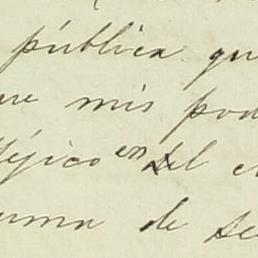 pública qu
ue mis pod
éjico en el e
uma de se